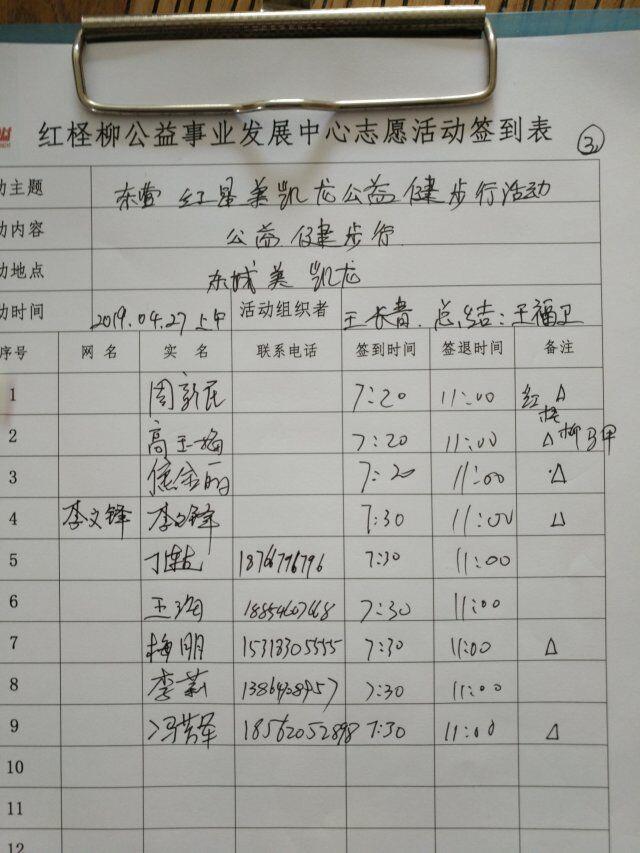 红柽柳公益事业发展中心志愿活动签到表 ③
动主题 东营 红星美凯龙公益健步行活动
动内容 公益健步行
动地点 东城美凯龙
动时间 2019.04.27上午 活动组织者 王长青. 总结:王福卫
序号 网 名 实 名 联系电话 签到时间 签退时间 备注
1 周新民 7:20 11:00 红 △
2 高玉梅 7:20 11:00 △ 柽柳马甲
3 7:20 11:00 △
4 李文锋 李文锋 7:30 11:00 △
5 18766796796 7:30 11:00
6 王海 7:30 11:00
7 梅朋 15313305555 7:30 11:00 △
8 李莉 7:30 11:00
9 冯芸泽 18562052898 7:30 11:00 △
10
11
12